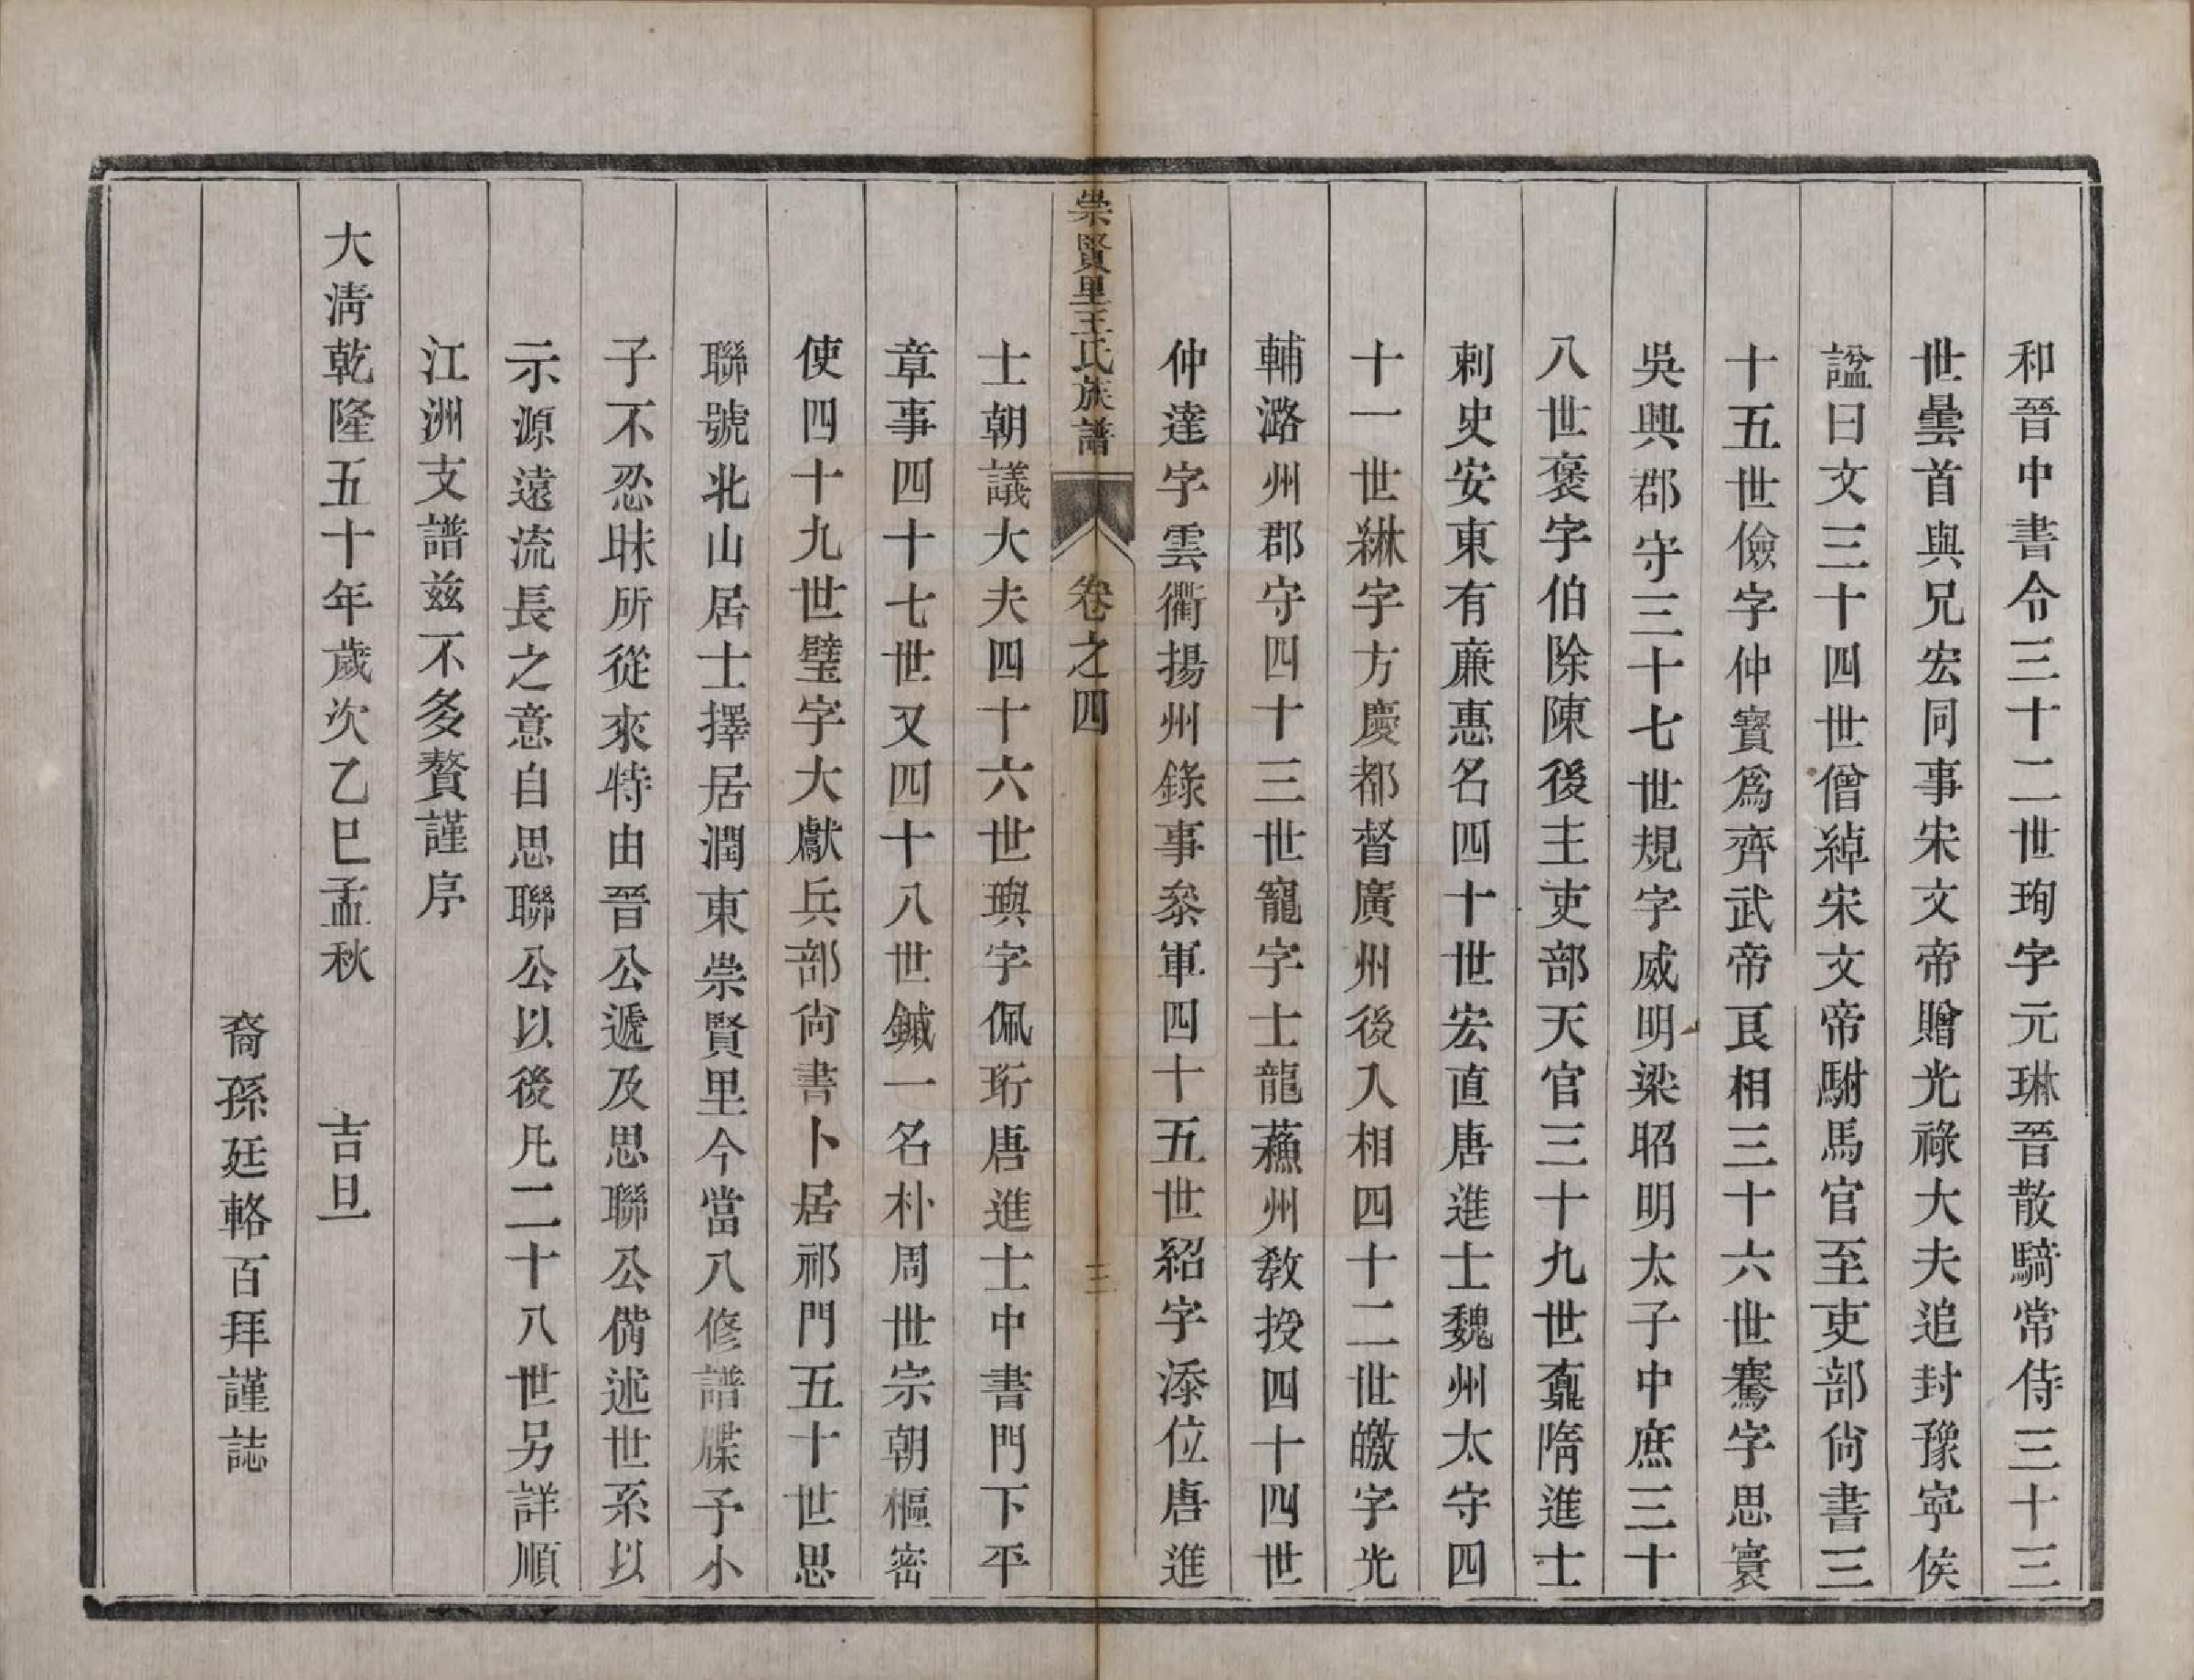 和晉中書令三十二世珣字元琳晉散騎常侍三十三
世曇首與兄宏同事宋文帝贈光祿大夫追封豫寧侯
諡曰文三十四世僧綽宋文帝駙馬官至吏部尙書三
十五世儉字仲寶爲齊武帝良相三十六世騫字思寰
吳興郡守三十七世規字威明梁昭明太子中庶三十
八世褒字伯除陳後主吏部天官三十九世鼐隋進士
刺史安東有亷惠名四十世宏直唐進士魏州太守四
十一世綝字方慶都督廣州後入相四十二世皦字光
輔潞州郡守四十三世寵字士龍蘓州敎授四十四世
仲達字雲衢揚州錄事叅軍四十五世紹字添位唐進
崇賢里王氏族譜 卷之四 三
士朝議大夫四十六世璵字佩珩唐進士中書門下平
章事四十七世又四十八世鋮一名朴周世宗朝樞密
使四十九世璧字大獻兵部尙書卜居祁門五十世思
聯號北山居士擇居潤東崇賢里今當八修譜牒予小
子不忍昧所從來特由晉公遞及思聯公僃述世系以
示源遠流長之意自思聯公以後凡二十八世另詳順
江洲支譜兹不多贅謹序
大淸乾隆五十年歲次乙巳孟秋 吉旦
裔孫廷輅百拜謹誌